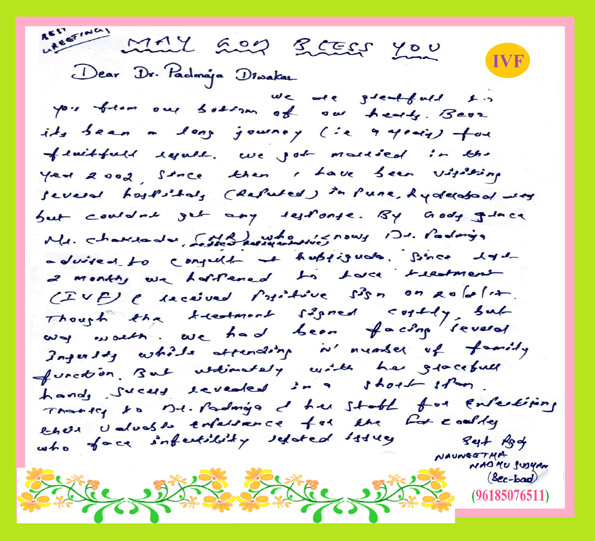 BEST
GREETINGS
MAY GOD BLESS YOU
IVF
Dear Dr. Padmaja Diwakar
We are greatfull to
you from our bottom of our hearts. Becoz
its been a long journey (ie 9 years) for
fruitfull result. We got married in the
year 2002, since then i have been visiting
several hospitals (Reputed) in Pune, Hyderabad
but couldnt get any response. By Gods grace
Mr. (MR) who knows Dr. Padmaja
advised to consult at habsiguda. Since last
2 months we happened to take treatment
(IVF) & received Positive sign on
Though the treatment signed costly, but
was worth. We had been facing several
while attending 'n' number of family
function. But ultimately with her gracefull
hands, sucess revealed in a short span.
Thanks to Dr. Padmaja & her staff for
their valuable for the
who face infertility related issues
Best
NAVNEETHA
(Sec-bad)
(96185076511)